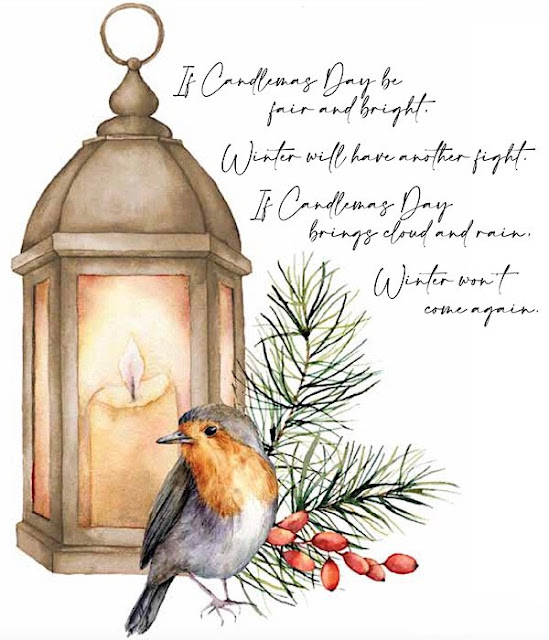 If Candlemas Day be
fair and bright.
Winter will have another fight.
If Candlemas Day
brings cloud and rain,
Winter won't
come again.